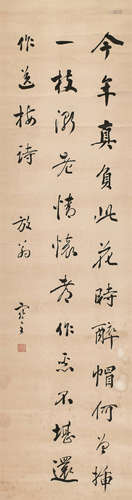 今年真負此花時醉帽何曾插
一枝漸老情懷多作惡不堪還
作送梅詩
放翁